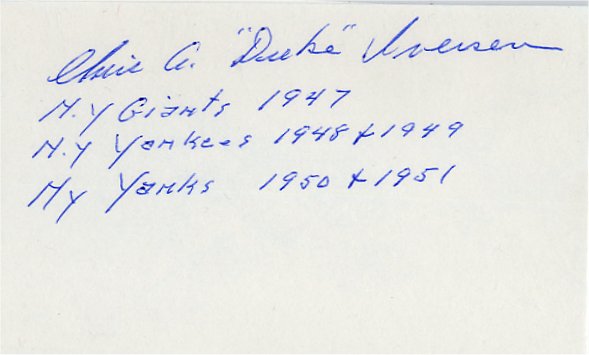 Chris A. "Duke" Iversen
N.Y Giants 1947
N.Y Yankees 1948 & 1949
NY Yanks 1950 & 1951